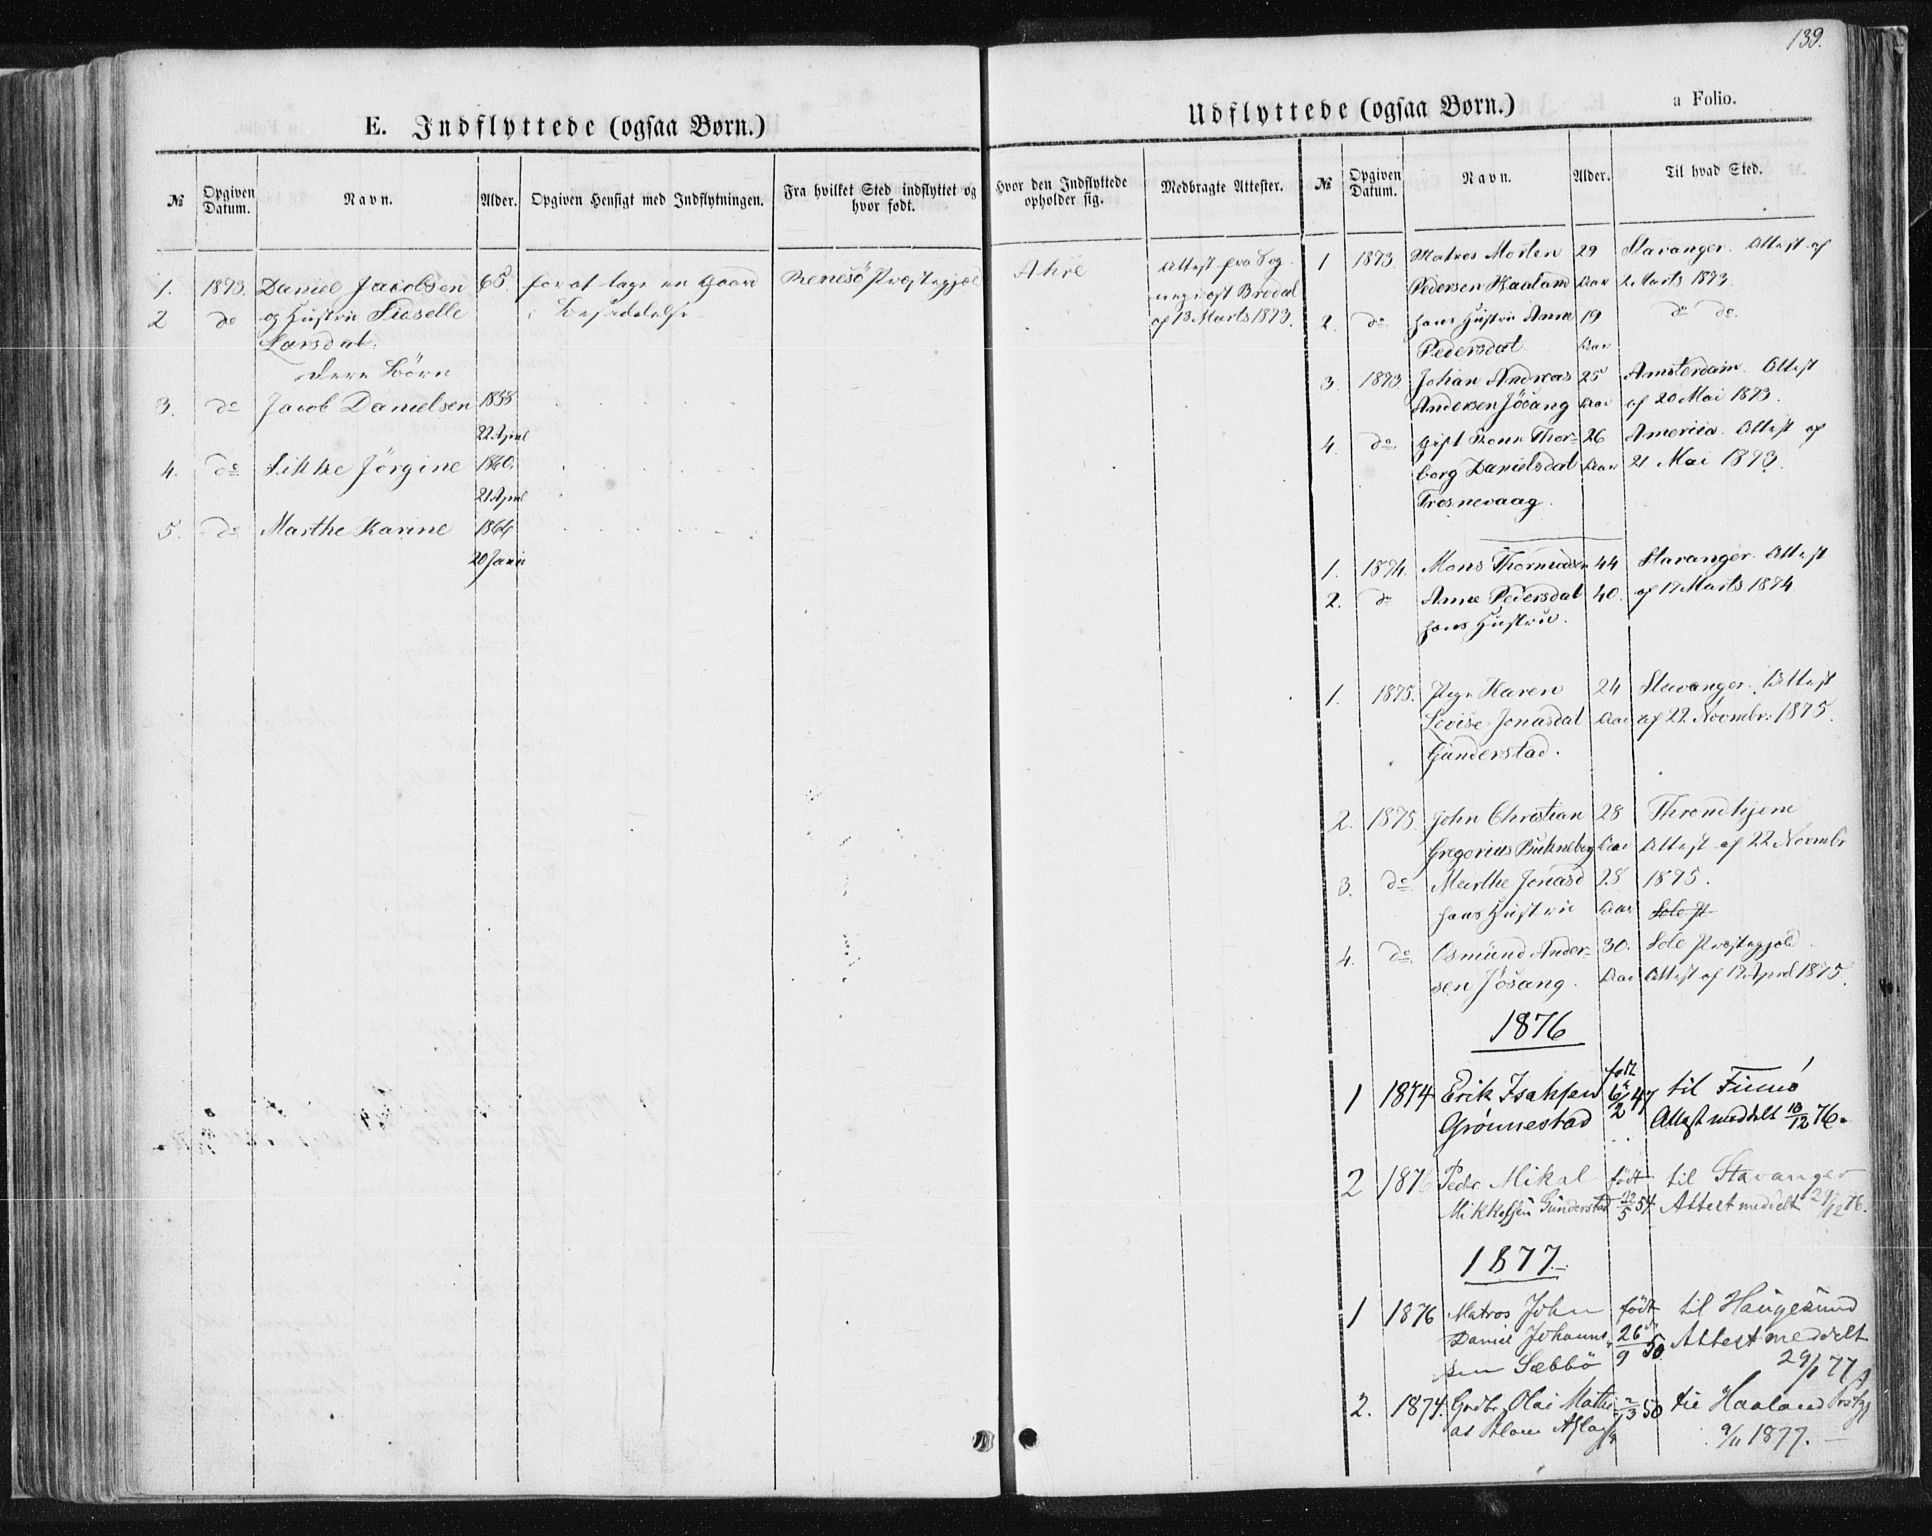 139.
E. Indflyttede (ogsaa Børn.)
№ Opgiven Datum. Navn. Alder. Opgiven Hensigt med Indflytningen. Fra hvilket Sted indflyttet og hvor født. Hvor den Indflyttede opholder sig. Medbragte Attester.
1. 1873. Daniel Jacobsen 65. for at tage en Gaard Rennesö Præstegjæld Ahre Attest fra Sog-
2 do og Hustru Larsdat. i Besiddelse neprest Bredal
af 13 Marts 1873.
Deres Börn
3. do Jacob Danielsen 1858
22 April
4. do Sikke Jörgine 1860.
21 April
5. do Marthe Karine 1864
20 Janu
Udflyttede (ogsaa Børn.)
a Folio.
№ Opgiven Datum. Navn. Alder. Til hvad Sted.
1 1873. Matros Morten 29 Stavanger. Attest af
Pedersen Haaland Aar 2 Marts 1873.
2. do. hans Hustru Anna 19 do do.
Pedersdat Aar
3. 1873 Johan Andreas 25 Amsterdam. Attest
Andersen Jösang Aar af 20 Mai 1873.
4. do. gift Kone Thor- 26 America. Attest af
borg Danielsdat Aar 21 Mai 1873.
Trosnevaag.
1. 1874. Mons Thormodsen 44 Stavanger. Attest
2. do Anna Pedersdat 40. af 17 Marts 1874.
hans Hustru.
1. 1875. Pige Karen 24 Stavanger. Attest
Lovise Jonasdat Aar af 22 Novembr: 1875.
Gunderstad.
2. 1875. John Christian 28 Throndhjem
Gregorius Aar Attest af 22 Novembr
3. do. Marthe Jonasd 28 1875.
hans Hustru Aar
4. do. Osmund Ander- 30. Sole Præstegjæld.
sen Jösang. Aar Attest af 17 April 1875.
1876
1 1874 Erik Isaksen født 6/2 47 til Finnö
Grönnestad Attest meddelt 18/12 76.
2 1876 Peder Mikal födt til Stavanger
Mikkelsen Gunderstad 22/5 54. Attest meddelt 29/12 76.
1877.
1 1876 Matros John födt til Haugesund
Daniel Johanne- 26/9 50. Attest meddelt
sen Sæbbö 29/1 77
2. 1874. Olai Mathi- 2/3 50 til Haaland Prstgj
as 9/11 1877.